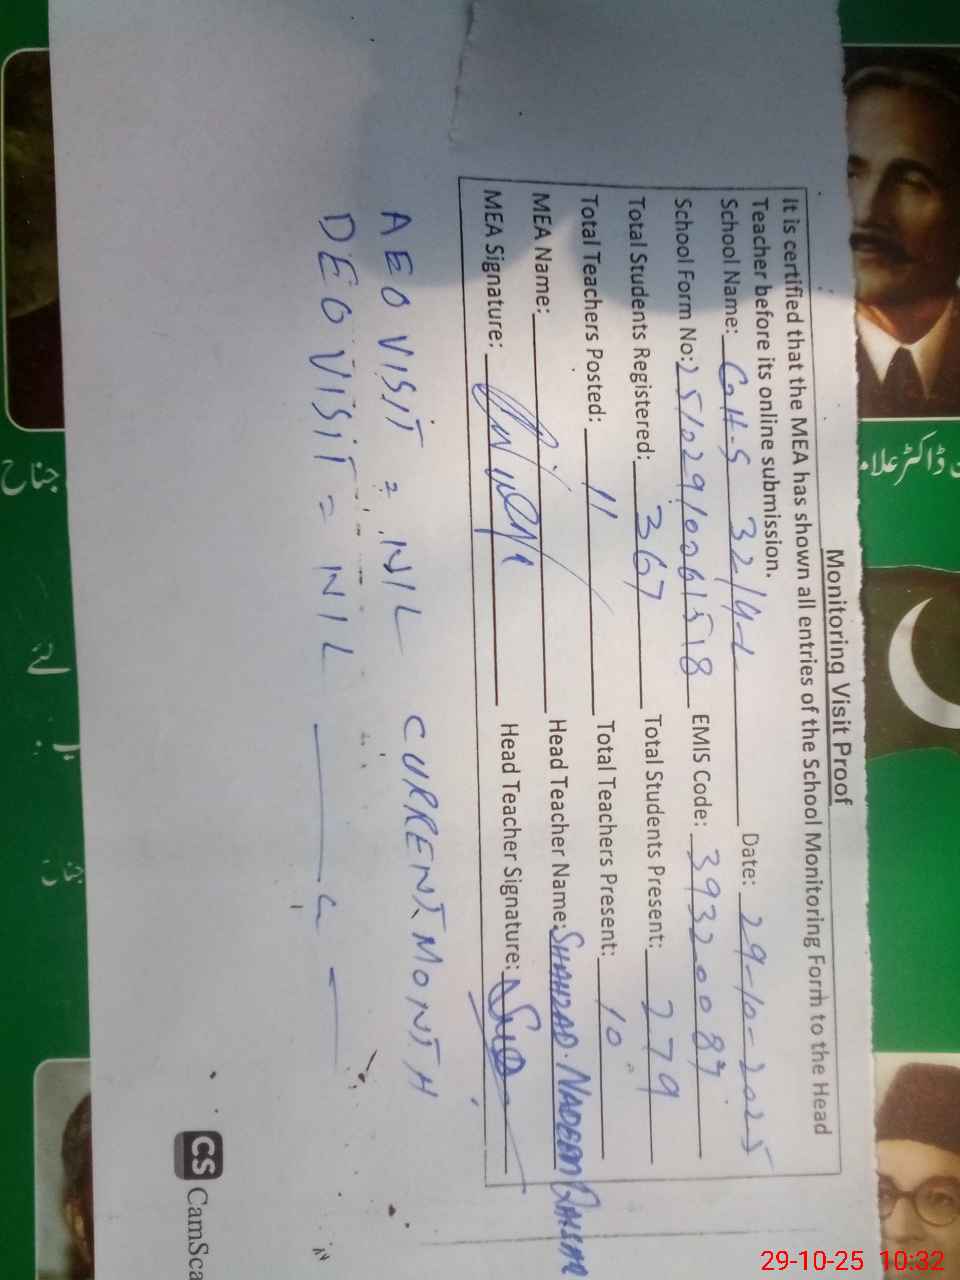 Monitoring Visit Proof
It is certified that the MEA has shown all entries of the School Monitoring Form to the Head
Teacher before its online submission.
School Name: GHS 32/4-L Date: 29-10-2025
School Form No: 25102910061518 EMIS Code: 39320087
Total Students Registered: 367 Total Students Present: 279
Total Teachers Posted: 11 Total Teachers Present: 10
MEA Name: Head Teacher Name: SHAHZAD NADEEM QAISAR
MEA Signature: Head Teacher Signature:
AEO VISIT = NIL CURRENT MONTH
DEO VISIT = NIL
CS CamSca
ڈاکٹر علامہ
جناح
لئے
جناح
29-10-25 10:32